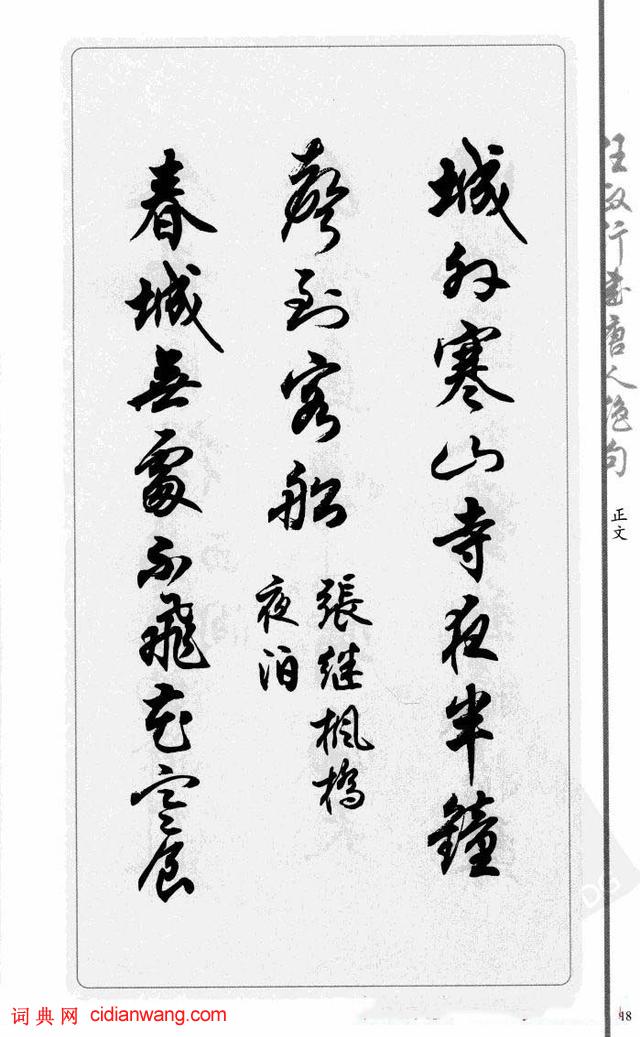 城外寒山寺夜半鐘
聲到客船
張继楓橋
夜泊
春城無處不飛花寒食
任政行書唐人绝句
正文
18
词典网 cidianwang.com
DG